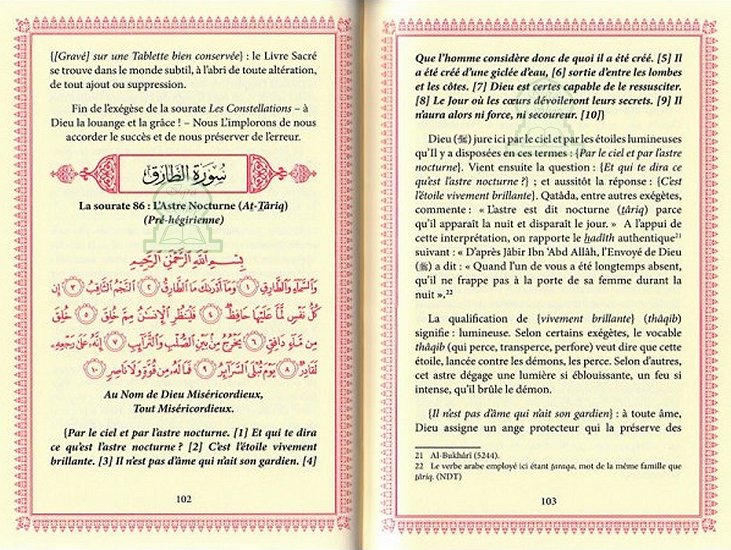 {[Gravé] sur une Tablette bien conservée} : le Livre Sacré
se trouve dans le monde subtil, à l'abri de toute altération,
de tout ajout ou suppression.
Fin de l'exégèse de la sourate Les Constellations – à
Dieu la louange et la grâce ! – Nous L'implorons de nous
accorder le succès et de nous préserver de l'erreur.
سُورَةُ الطَّارِقِ
La sourate 86 : L'Astre Nocturne (Aṭ-Ṭâriq)
(Pré-hégirienne)
بِسْمِ اللَّهِ الرَّحْمَٰنِ الرَّحِيمِ
وَالسَّمَاءِ وَالطَّارِقِ ١ وَمَا أَدْرَاكَ مَا الطَّارِقُ ٢ النَّجْمُ الثَّاقِبُ ٣ إِن
كُلُّ نَفْسٍ لَّمَّا عَلَيْهَا حَافِظٌ ٤ فَلْيَنظُرِ الْإِنسَانُ مِمَّ خُلِقَ ٥ خُلِقَ
مِن مَّاءٍ دَافِقٍ ٦ يَخْرُجُ مِن بَيْنِ الصُّلْبِ وَالتَّرَائِبِ ٧ إِنَّهُ عَلَىٰ رَجْعِهِ
لَقَادِرٌ ٨ يَوْمَ تُبْلَى السَّرَائِرُ ٩ فَمَا لَهُ مِن قُوَّةٍ وَلَا نَاصِرٍ ١٠
Au Nom de Dieu Miséricordieux,
Tout Miséricordieux.
{Par le ciel et par l'astre nocturne. [1] Et qui te dira
ce qu'est l'astre nocturne ? [2] C'est l'étoile vivement
brillante. [3] Il n'est pas d'âme qui n'ait son gardien. [4]
102
Que l'homme considère donc de quoi il a été créé. [5] Il
a été créé d'une giclée d'eau, [6] sortie d'entre les lombes
et les côtes. [7] Dieu est certes capable de le ressusciter.
[8] Le Jour où les cœurs dévoileront leurs secrets. [9] Il
n'aura alors ni force, ni secoureur. [10]}
Dieu (ﷻ) jure ici par le ciel et par les étoiles lumineuses
qu'Il y a disposées en ces termes : {Par le ciel et par l'astre
nocturne}. Vient ensuite la question : {Et qui te dira ce
qu'est l'astre nocturne ?} ; et aussitôt la réponse : {C'est
l'étoile vivement brillante}. Qatâda, entre autres exégètes,
commente : « L'astre est dit nocturne (ṭâriq) parce
qu'il apparaît la nuit et disparaît le jour. » A l'appui de
cette interprétation, on rapporte le ḥadîth authentique21
suivant : « D'après Jâbir Ibn 'Abd Allâh, l'Envoyé de Dieu
(ﷺ) a dit : « Quand l'un de vous a été longtemps absent,
qu'il ne frappe pas à la porte de sa femme durant la
nuit ».22
La qualification de {vivement brillante} (thâqib)
signifie : lumineuse. Selon certains exégètes, le vocable
thâqib (qui perce, transperce, perfore) veut dire que cette
étoile, lancée contre les démons, les perce. Selon d'autres,
cet astre dégage une lumière si éblouissante, un feu si
intense, qu'il brûle le démon.
{Il n'est pas d'âme qui n'ait son gardien} : à toute âme,
Dieu assigne un ange protecteur qui la préserve des
21 Al-Bukhârî (5244).
22 Le verbe arabe employé ici étant ṭaraqa, mot de la même famille que
ṭâriq. (NDT)
103